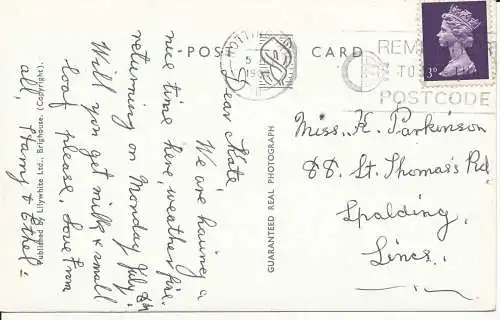 POST CARD
REME
TO
POSTCODE
3D
Dear Kate,
We are having a
nice time here, weather fine.
returning on Monday July 8th
Will you get milk & small
loaf please, love from
all, Harry & Ethel.
Miss. K. Parkinson
88 St. Thomas's Rd
Spalding,
Lincs.
GUARANTEED REAL PHOTOGRAPH
Published by Lilywhite Ltd., Brighouse. (Copyright).